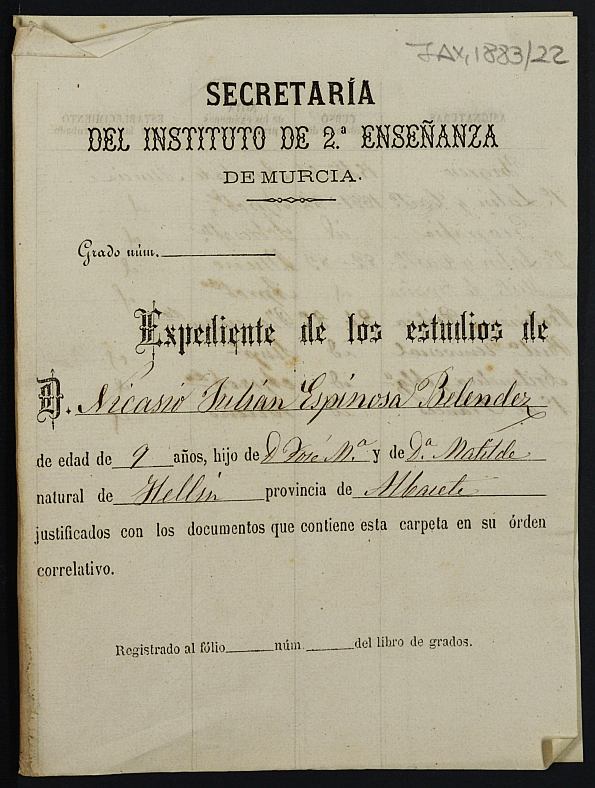 JAX, 1883/22
SECRETARÍA
DEL INSTITUTO DE 2.ª ENSEÑANZA
DE MURCIA.
Grado núm.
Expediente de los estudios de
D. Nicasio Julián Espinosa Belendez
de edad de 9 años, hijo de D José M.ª y de D.ª Matilde
natural de Hellín provincia de Albacete
justificados con los documentos que contiene esta carpeta en su órden
correlativo.
Registrado al fólio núm. del libro de grados.